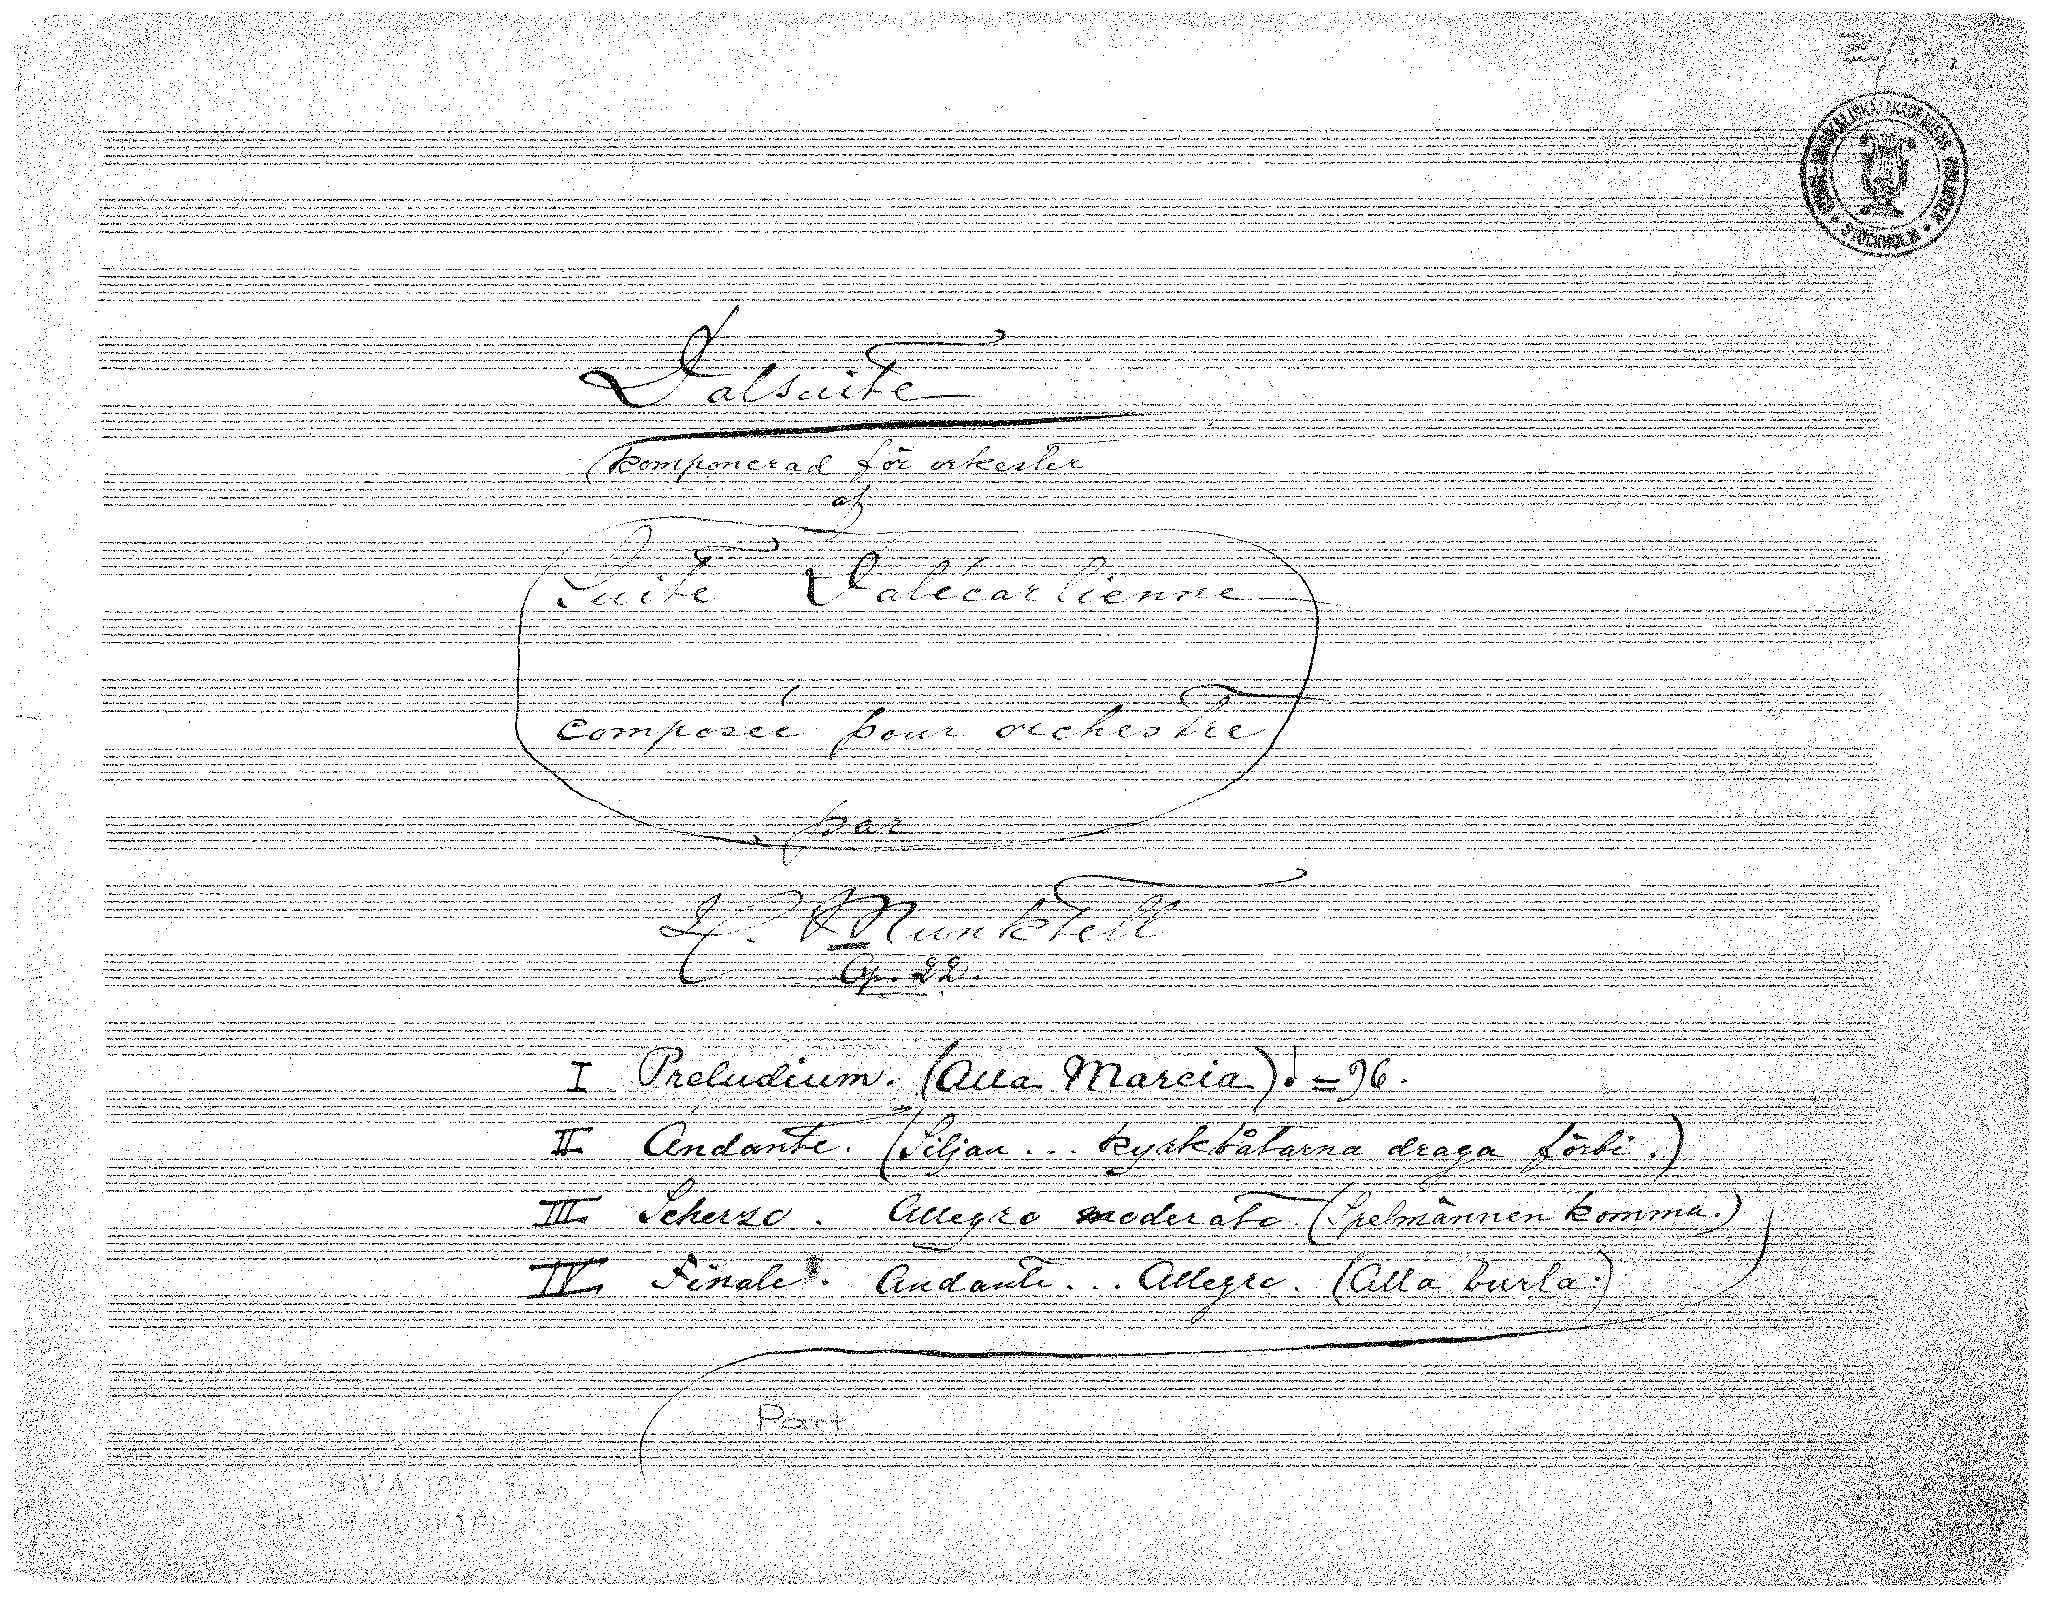 Dalsuite
komponerad för orkester
af
Suite Dalécarlienne
composée pour orchestre
par
H. Munktell
Op. 22.
I Preludium. (Alla Marcia) ♩. = 96.
II Andante. (Siljan ... kyrkbåtarna draga förbi.)
III Scherzo. Allegro moderato (Spelmännen komma.)
IV Finale. Andante ... Allegro. (Alla burla.)
Part
STOCKHOLM